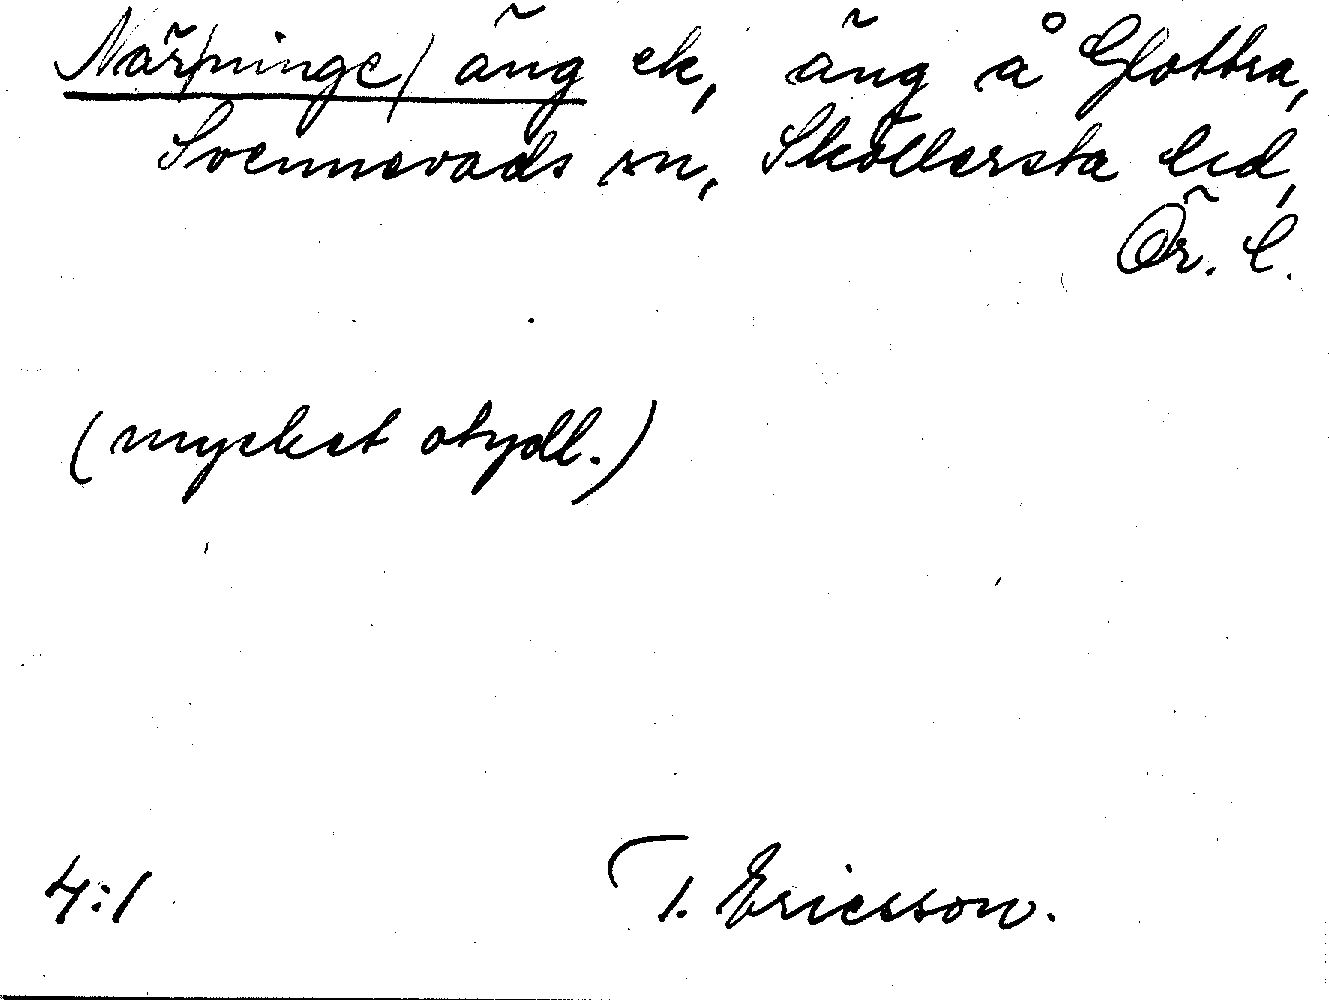 När/ninge/ äng ek, äng å Glottra,
Svennevads sn, Sköllersta hd,
Ör. l.
(mycket otydl.)
4:1 T. Ericsson.